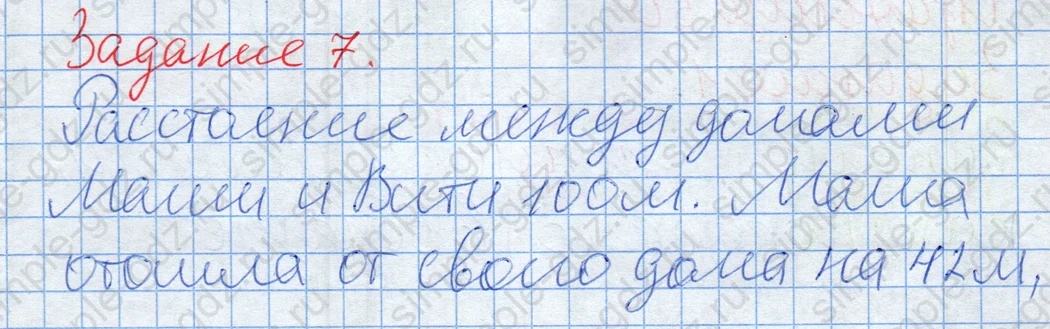 Задание 7.
Расстояние между домами
Маши и Вити 100м. Маша
отошла от своего дома на 42м,